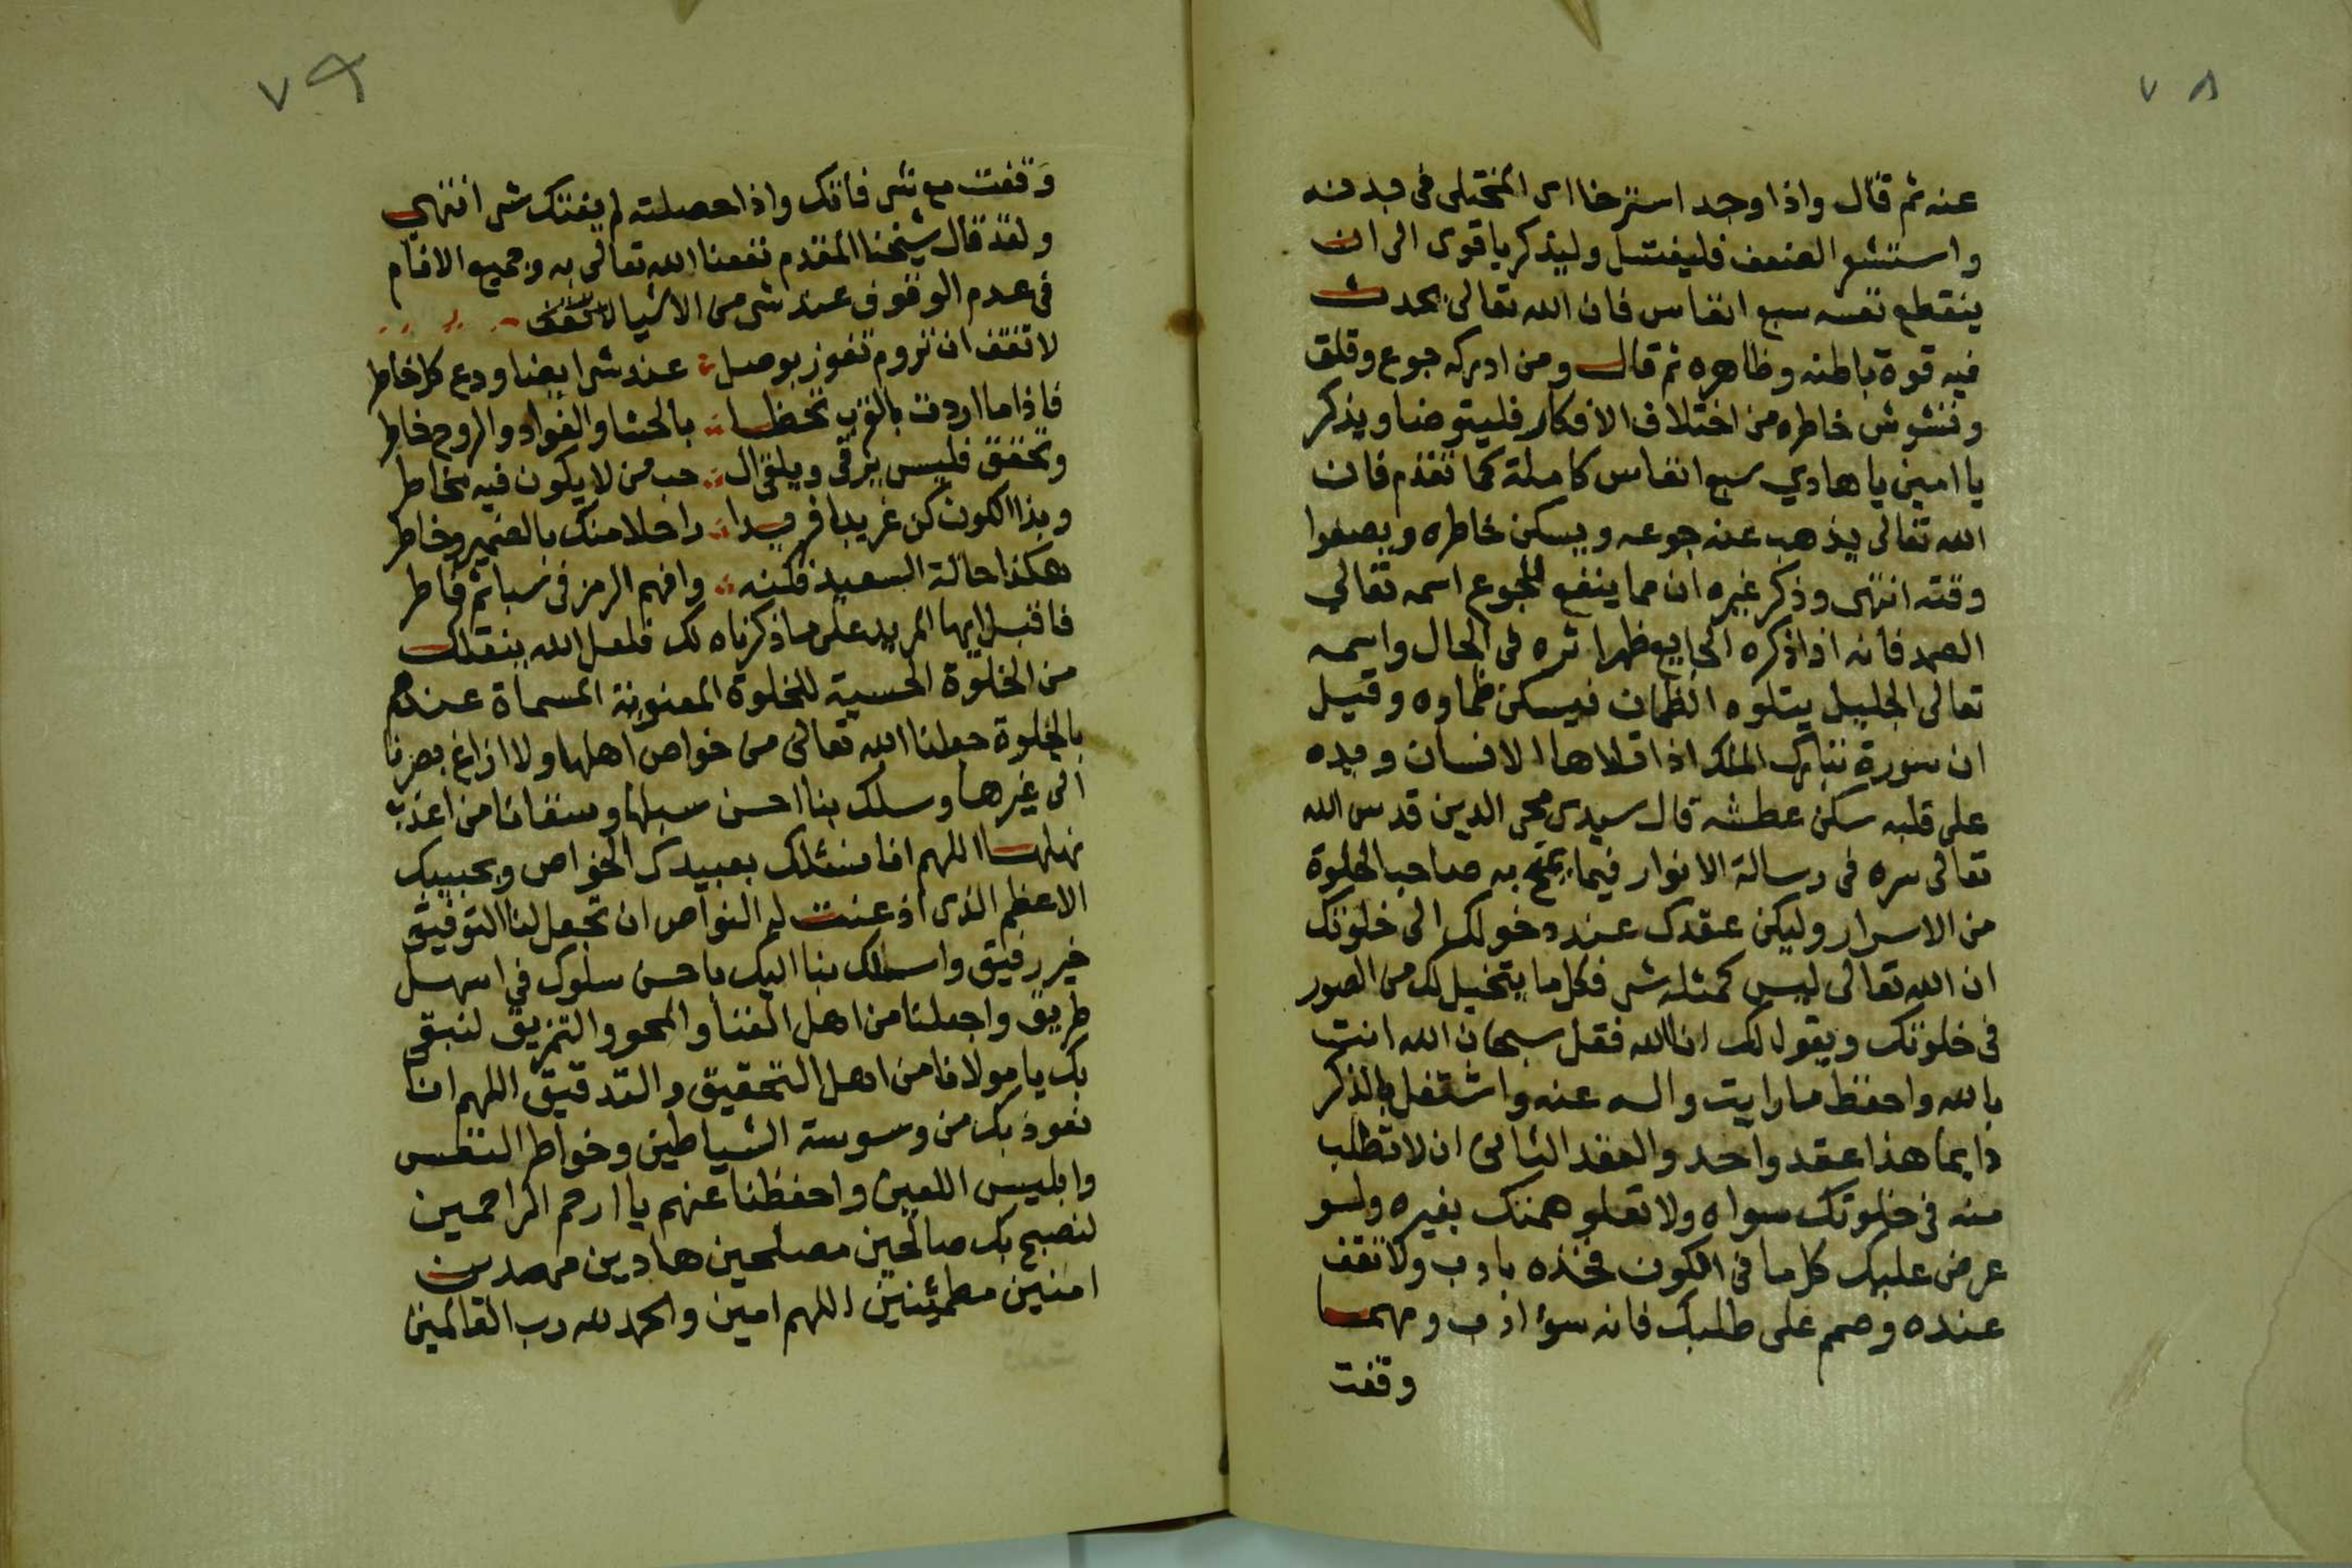 ٧٨
عنه ثم قال واذا وجد استرخا اى المختلى فى بدنه
واستشعر الضعف فليغتسل وليذكر ياقوى الى ان
ينقطع نفسه سبع انفاس فان الله تعالى يحدث
فيه قوة باطنه وظاهره ثم قال ومن ادركه جوع وقلق
وتشوش خاطره من اختلاف الافكار فليتوضا ويذكر
يا امين يا هادي سبع انفاس كاملة كما تقدم فان
الله تعالى يذهب عنه جوعه ويسكن خاطره ويصفوا
وقته انتهى وذكر غيره ان مما ينفع للجوع اسمه تعالى
الصمد فانه اذا ذكره الجايع ظهر اثره فى الحال واسمه
تعالى الجليل يتلوه الظمان فيسكن ظماوه وقيل
ان سورة تبارك الملك اذا تلاها الانسان ويده
على قلبه سكن عطشه قال سيدى محى الدين قدس الله
تعالى سره فى رسالة الانوار فيما يمنح به صاحب الخلوة
من الاسرار وليكن عقدك عند دخولك الى خلوتك
ان الله تعالى ليس كمثله شى فكل ما يتخيل لك من الصور
فى خلوتك ويقول لك انا الله فقل سبحان الله انت
بالله واحفظ ما رايت واله عنه واشتغل بالذكر
دايما هذا عقد واحد والعقد الثانى ان لا تطلب
منه فى خلوتك سواه ولا تعلو همتك بغيره ولو
عرض عليك كل ما فى الكون فخذه بادب ولا تقف
عنده وصمم على طلبك فانه سوٴ ادب ومهما
وقفت
٧٩
وقفت مع شى فاتك واذا حصلته لم يفتك شى انتهى
ولقد قال شيخنا المقدم نفعنا الله تعالى به وجميع الانام
فى عدم الوقوف عند شى من الاشيا
لا تقف ان تروم تفوز بوصل عند شى ايضا ودع كل خاطر
فاذا ما اردت بالقرب تحظا بالحشا والفواد والروح خاطر
وتحقق فليس يرقى ويلقى ال حب من لا يكون فيه يخاطر
وبذا الكون كن غريبا فريدا راحلا منك بالضمير وخاطر
هكذا حالة السعيد فكنه وافهم الرمز فى سبا ثم فاطر
فاقبل ايها المريد على ما ذكرناه لك فلعل الله ينقلك
من الخلوة الحسية للخلوة المعنوية المسماة عندهم
بالجلوة جعلنا الله تعالى من خواص اهلها ولا ازاغ بصرنا
الى غيرها وسلك بنا احسن سبلها وسقانا من اعذب
نهلها اللهم انا نسئلك بعبيدك الخواص وبحبيبك
الاعظم الذى اذعنت له النواص ان تجعل لنا التوفيق
خير رفيق واسلك بنا اليك باحسن سلوك فى اسهل
طريق واجعلنا من اهل الفنا والمحو والتمزيق لنبق
بك يا مولانا من اهل التحقيق والتدقيق اللهم انا
نعوذ بك من وسوسة الشياطين وخواطر النفس
وابليس اللعين واحفظنا عنهم يا ارحم الراحمين
لنصبح بك صالحين مصلحين هادين مهدين
امنين مطمئنين اللهم امين والحمد لله رب العالمين